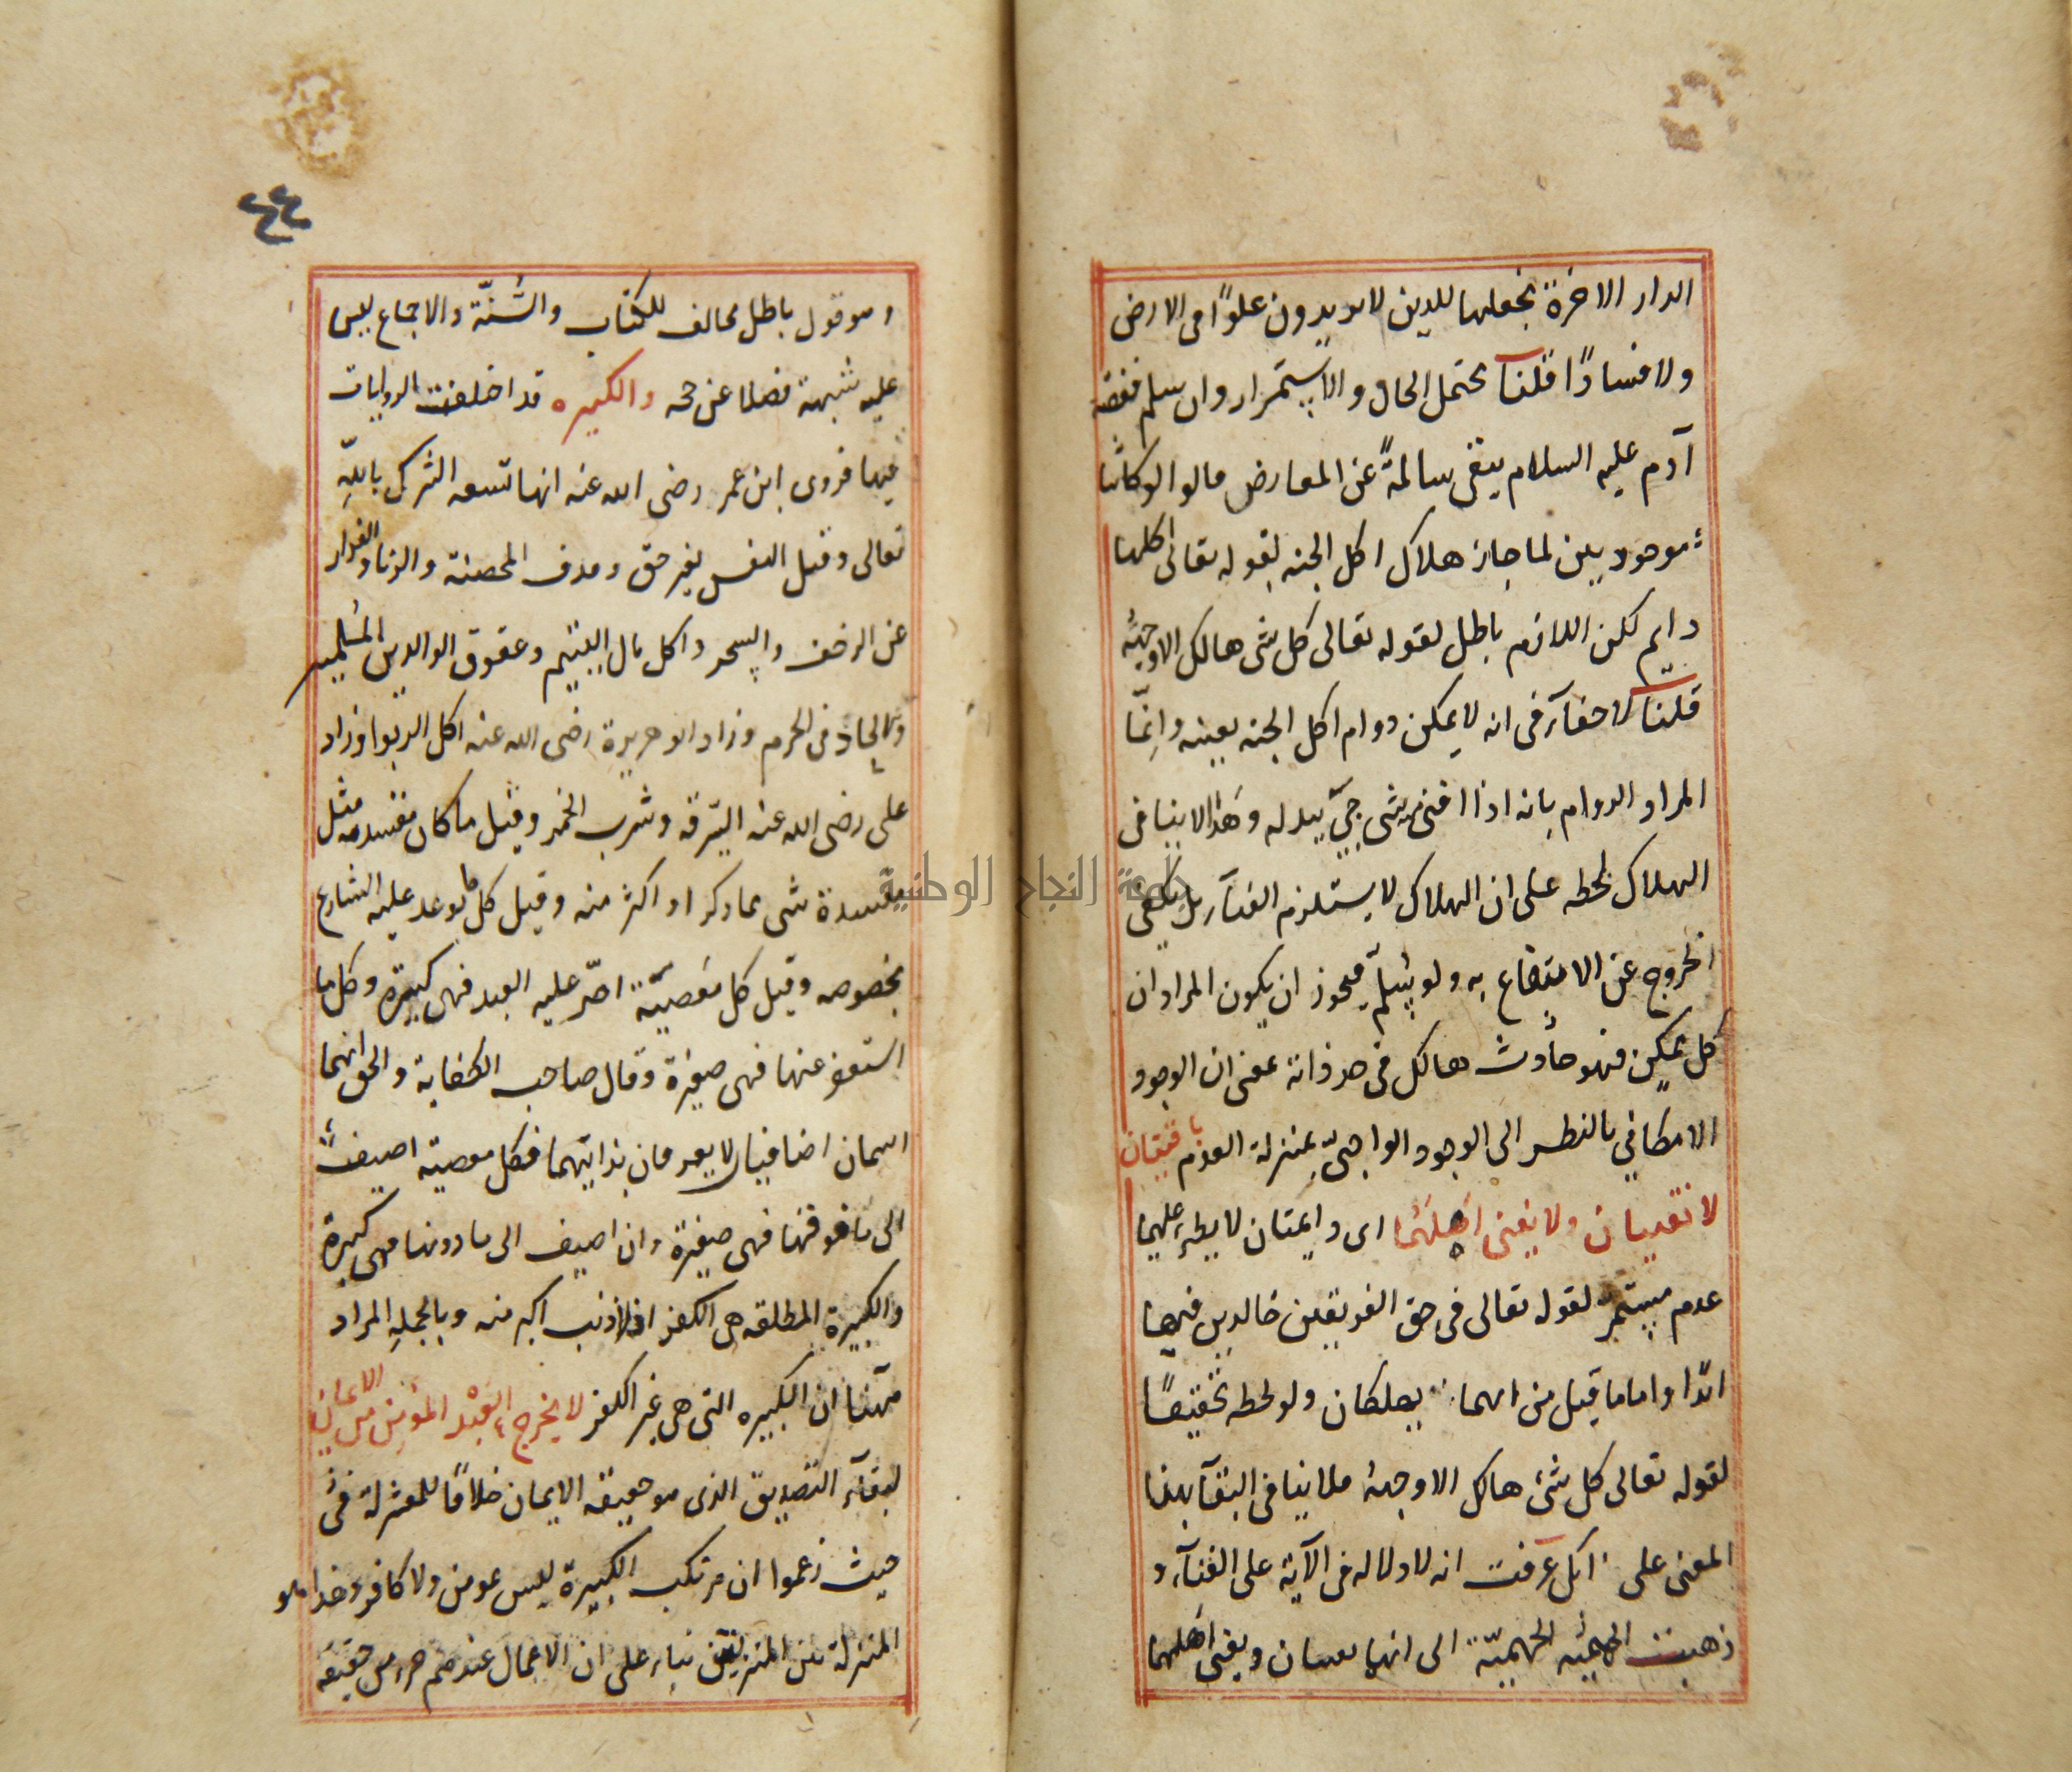 الدار الاخرة نجعلها للذين لا يريدون علوًا فى الارض
ولا فسادًا قلنا يحتمل الحال والاستمرار وان سلم فقصة
آدم عليه السلام يبقى سالمةً عن المعارض قالوا لو كانتا
موجودتين لما جاز هلاك اكل الجنه لقوله تعالى اكلها
دايم لكن اللازم باطل لقوله تعالى كل شى هالك الا وجهه
قلنا لا خفآء فى انه لا يمكن دوام اكل الجنه بعينه وانّما
المراد الدوام بانه اذا افنى منه شى جىٔ ببدله وهذا لا ينافى
الهلاك لحظه على ان الهلاك لا يستلزم الفنآء بل يكفى
الخروج عن الانتفاع به ولو سُلّم فيجوز ان يكون المراد ان
كل ممكن فهو حادث هالك فى حد ذاته بمعنى ان الوجود
الامكاني بالنظر الى الوجود الواجبىّ بمنزلة العدم باقيتان
لا تفنيان ولا يفنى اهلهُما اى دايمتان لا يطرء عليهما
عدم مستمرّ لقوله تعالى فى حق الفريقين خالدين فيها
ابدًا واما ما قيل من انهما يهلكان ولو لحظه تحقيقًا
لقوله تعالى كل شئ هالك الا وجههٔ فلا ينافى البقآ بهذا
المعنى على انك عرفت انه لا دلاله فى الآية على الفنآء و
ذهبت الجهميّة الى انهما يفنيان ويفنى اهلهما
٤٤
وهو قول باطل مخالف للكتاب والسُّنّة والاجماع ليس
عليه شبهة فضلا عن حجه والكبيره قد اختلفت الروايات
فيها فروى ابن عمر رضى الله عنه انها تسعه الشرك باللهِ
تعالى وقتل النفس بغير حق وقذف المحصنة والزنا والفرار
عن الزحف والسحر واكل مال اليتيم وعقوق الوالدين المسُلمين
والالحاد فى الحرم وزاد ابو هريرة رضى الله عنه اكل الربوا وزاد
على رضى الله عنه السّرقه وشرب الخمر وقيل ما كان مفسدته مثل
مفسدة شى مما ذكر او اكثر منه وقيل كل ما توعد عليه الشارع
بخصوصه وقيل كل مَعصيّة اصّر عليه العبد فهى كبيرة وكل ما
استغفر عنها فهى صغيرة وقال صاحب الكفاية والحق انهما
اسمان اضافيان لا يعرفان بذاتيهما فكل معصية اضيفت
الى ما فوقها فهى صغيرة وان اضيف الى ما دونها فهى كبيرة
والكبيرة المطلقه هى الكفر اذ لا ذنب اكبر منه وبالجملهِ المراد
ههنا ان الكبيره التى هى غير الكفر لا يخرج العَبْد المؤمن من الايمان
لبقآء التصديق الذى هو حقيقة الايمان خلافًا للمعتزلة فى
حيث زعموا ان مرتكب الكبيرة ليس بمومن ولا كافر وهذا هو
المنزلة بين المنزلتين بناء على ان الاعمال عندهم جزء من حقيقة
جامعة النجاح الوطنية